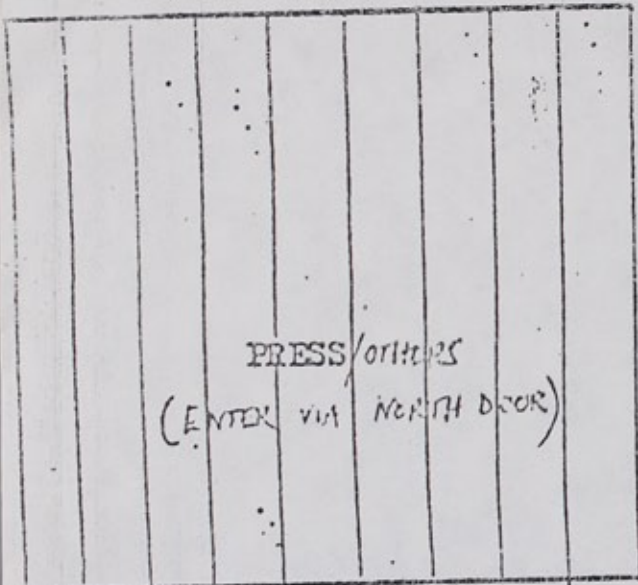 PRESS/OTHERS
(ENTER VIA NORTH DOOR)